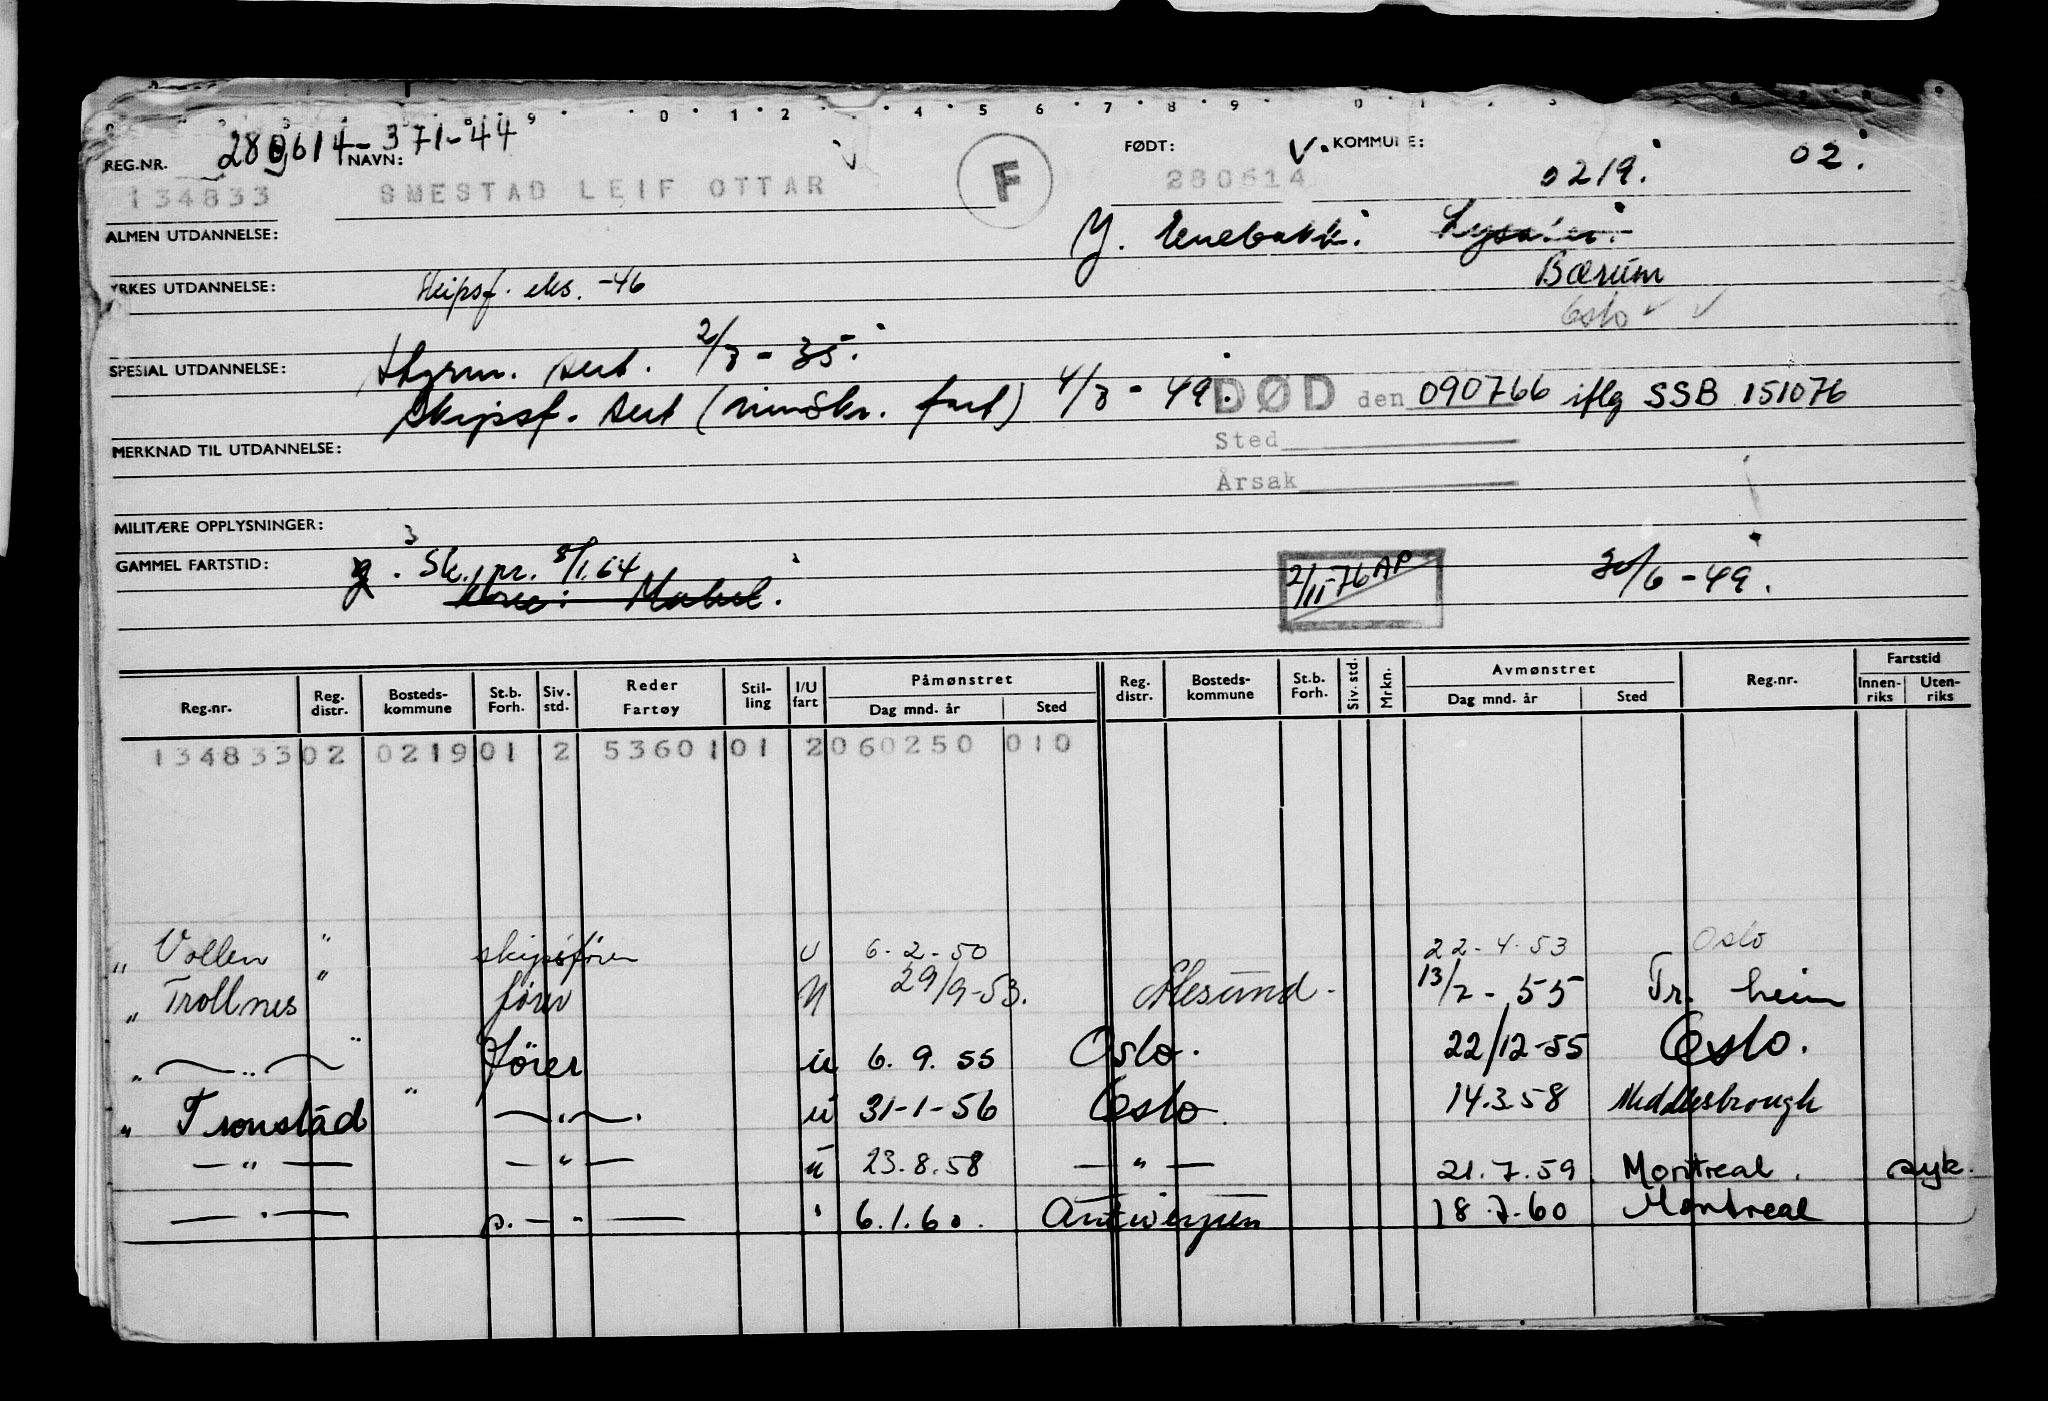 0 1 2 4 5 6 7 8 9 0 1
280614-371-44
REG.NR. NAVN: FØDT: V. KOMMUNE: 0219. 02.
134833 SMESTAD LEIF OTTAR F 280614
ALMEN UTDANNELSE: Y. Enebakk. Lysaker.
YRKES UTDANNELSE: Skipsf. eks. -46 Bærum
Oslo
SPESIAL UTDANNELSE: Styrm. sert. 2/8 - 35.
Skipsf. sert (innskr. fart) 4/8 - 49. DØD den 090766 iflg SSB 151076
MERKNAD TIL UTDANNELSE: Sted
Årsak
MILITÆRE OPPLYSNINGER:
GAMMEL FARTSTID: g. 3 Sk. pr. 8/1.64 2/11-76 AP 30/6 - 49.
Påmønstret Avmønstret Fartstid
Reg.nr. Reg. distr. Bosteds- kommune St.b. Forh. Siv. std. Reder Fartøy Stil- ling I/U fart Dag mnd. år Sted Reg. distr. Bosteds- kommune St.b. Forh. Siv. std. Mrkn. Dag mnd. år Sted Reg.nr. Innen- riks Uten- riks
134833 02 0219 01 2 53601 01 2 060250 010
" Vollen " skipsfører U 6-2-50 22-4-53 Oslo
" Trollnes " fører U 29/9-53. Ålesund. 13/2-55 Tr. heim
" —"— " fører u 6. 9. 55 Oslo. 22/12-55 Oslo.
" Tronstad " —"—. u 31-1-56 Oslo. 14.3.58 Middlesbrough
—"— —"— u 23.8.58 —"— 21.7.59 Montreal. syk.
—"— s.—"— " 6.1.60. Antwerpen 18.7.60 Montreal